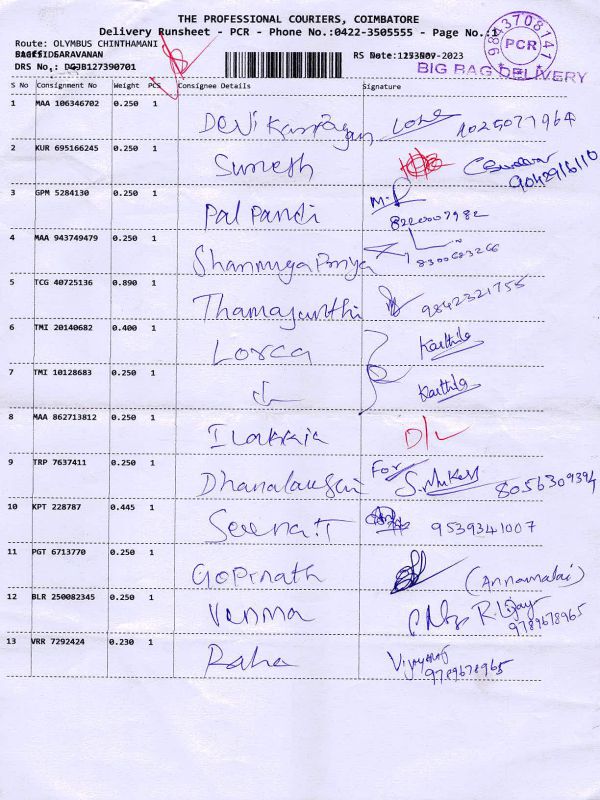 THE PROFESSIONAL COURIERS, COIMBATORE
Delivery Runsheet - PCR - Phone No.:0422-3505555 - Page No.:1
Route: OLYMBUS CHINTHAMANI
SARAVANAN
RS No
-2023
DRS No.: 127390701
9843708141
PCR
BIG BAG DELIVERY
S No Consignment No Weight PCS Consignee Details Signature
1 MAA 106346702 0.250 1 Devi
2 KUR 695166245 0.250 1 Sumesh
3 GPM 5284130 0.250 1 Pal Pandi
4 MAA 943749479 0.250 1 Shanmuga Priya 8300683266
5 TCG 40725136 0.890 1 9842321755
6 TMI 20140682 0.400 1 Lorca Karthika
7 TMI 10128683 0.250 1 Karthika
8 MAA 862713812 0.250 1 Ilakkia D/L
9 TRP 7637411 0.250 1 For S. Mukesh 8056309394
10 KPT 228787 0.445 1 9539341007
11 PGT 6713770 0.250 1 Gopinath (Annamalai)
12 BLR 250082345 0.250 1 Vanma 9789678965
13 VRR 7292424 0.230 1 Raha 9789678965